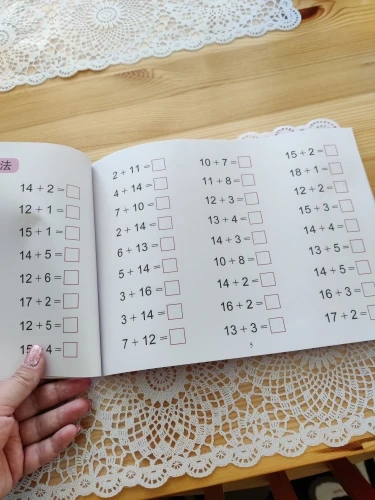 法
14 + 2 = □
12 + 1 = □
15 + 1 = □
14 + 5 = □
12 + 6 = □
17 + 2 = □
12 + 5 = □
15 + 4 = □
2 + 11 = □
4 + 14 = □
7 + 10 = □
2 + 14 = □
6 + 13 = □
5 + 14 = □
3 + 16 = □
3 + 14 = □
7 + 12 = □
10 + 7 = □
11 + 8 = □
12 + 3 = □
13 + 4 = □
14 + 3 = □
10 + 8 = □
14 + 2 = □
16 + 2 = □
13 + 3 = □
15 + 2 = □
18 + 1 = □
12 + 2 = □
15 + 3 = □
14 + 4 = □
13 + 5 = □
14 + 5 = □
16 + 3 = □
17 + 2 = □
5